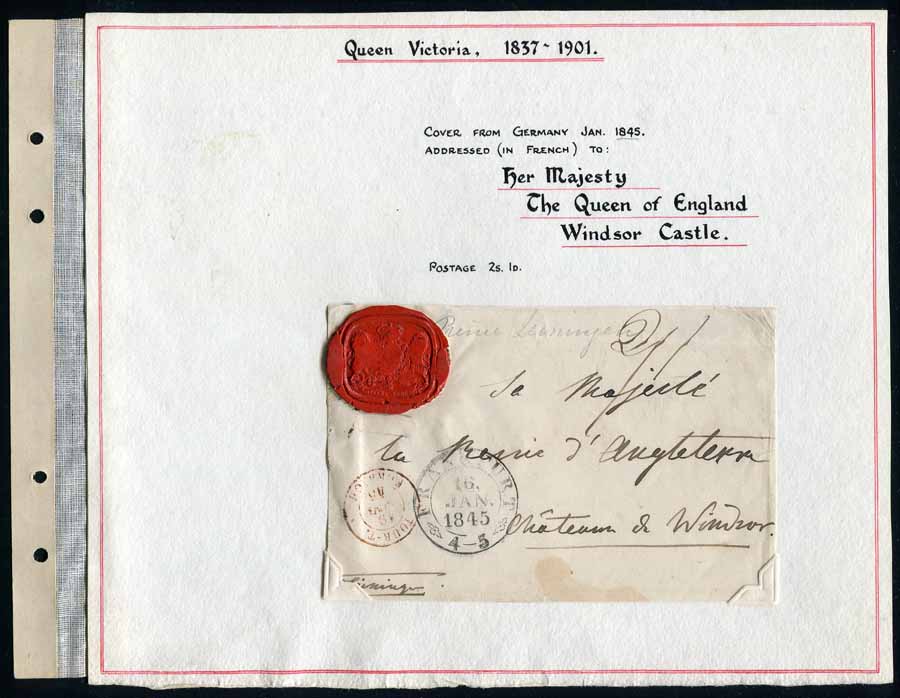 Queen Victoria, 1837-1901.
COVER FROM GERMANY JAN. 1845.
ADDRESSED (IN FRENCH) TO:
Her Majesty
The Queen of England
Windsor Castle.
POSTAGE 2S. 1D.
2/1
Sa Majesté
la Reine d'Angleterre
Château de Windsor.
FRANKFURT
16.
JAN.
1845
4-5
TOUR-T.